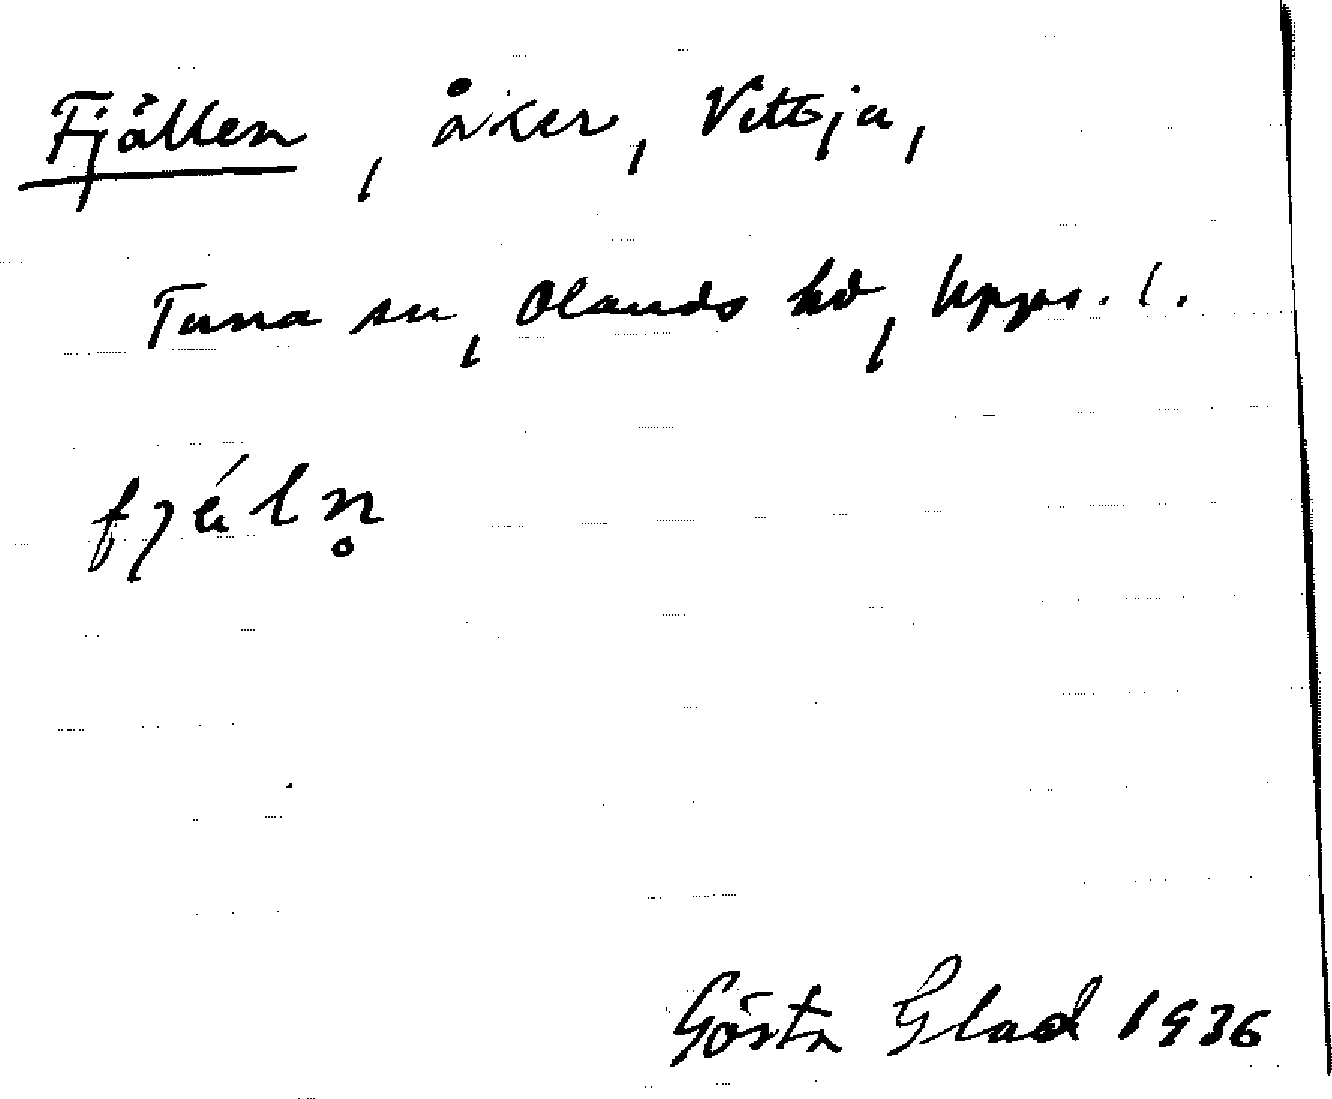 Fjällen, åker, Vettsja,
Tuna sn, Olands hd, Upps. l.
fjälņ̊
Gösta Glad 1936